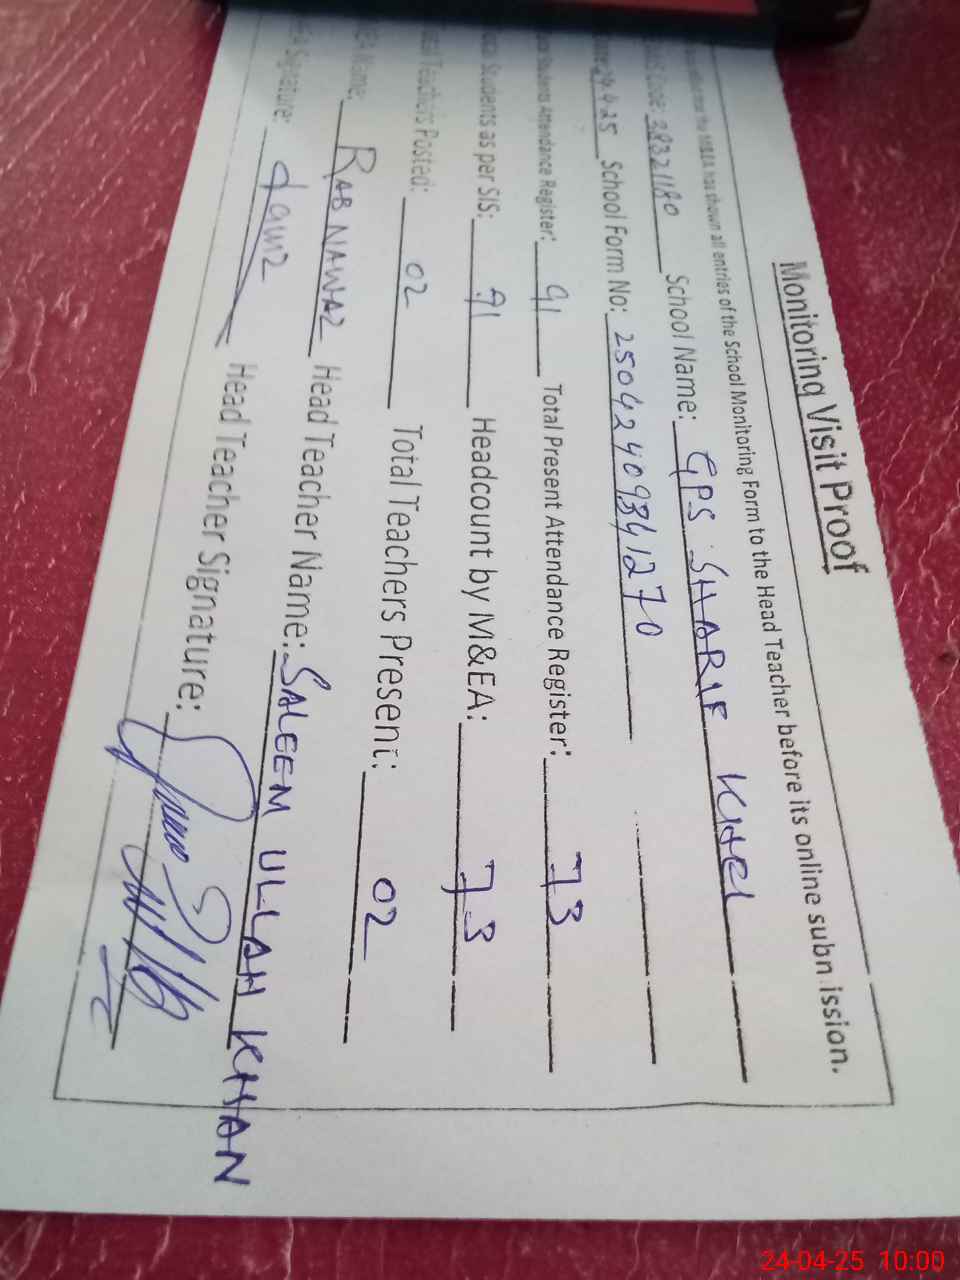 Monitoring Visit Proof
has shown all entries of the School Monitoring Form to the Head Teacher before its online subn ission.
Code: 38321180 School Name: GPS SHARIF KHEL
25 School Form No: 25042409341270
Students Attendance Register: 91 Total Present Attendance Register: 73
Students as per SIS: 91 Headcount by M&EA: 73
Teachers Posted: 02 Total Teachers Present: 02
Name: RAB NAWAZ Head Teacher Name: SALEEM ULLAH KHAN
Signature: Head Teacher Signature:
24-04-25 10:00